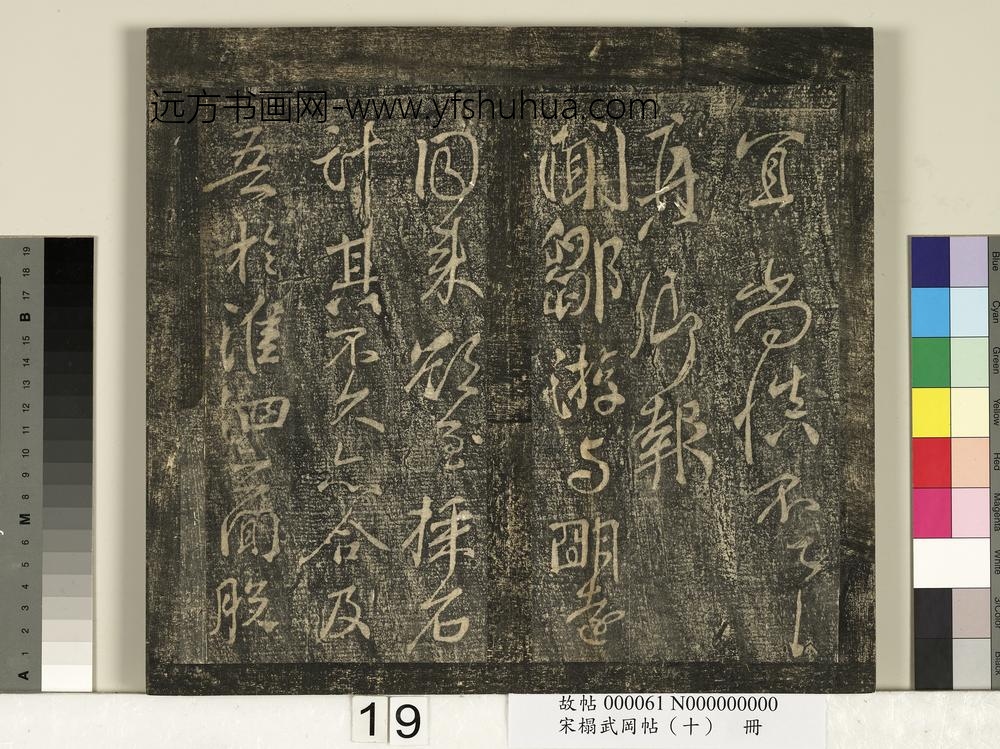 远方书画网-www.yfshuhua.com
宜尚慎不一一
真卿報
聞鄒游与明遠
同来欲至採石
計其不久亦合及
吾於淮泗間脱
19
故帖 000061 N000000000
宋榻武岡帖（十） 冊
19 18 17 B 15 14 13 12 11 10 9 8 M 6 5 4 3 2 1 A
Blue Cyan Green Yellow Red Magenta White Black